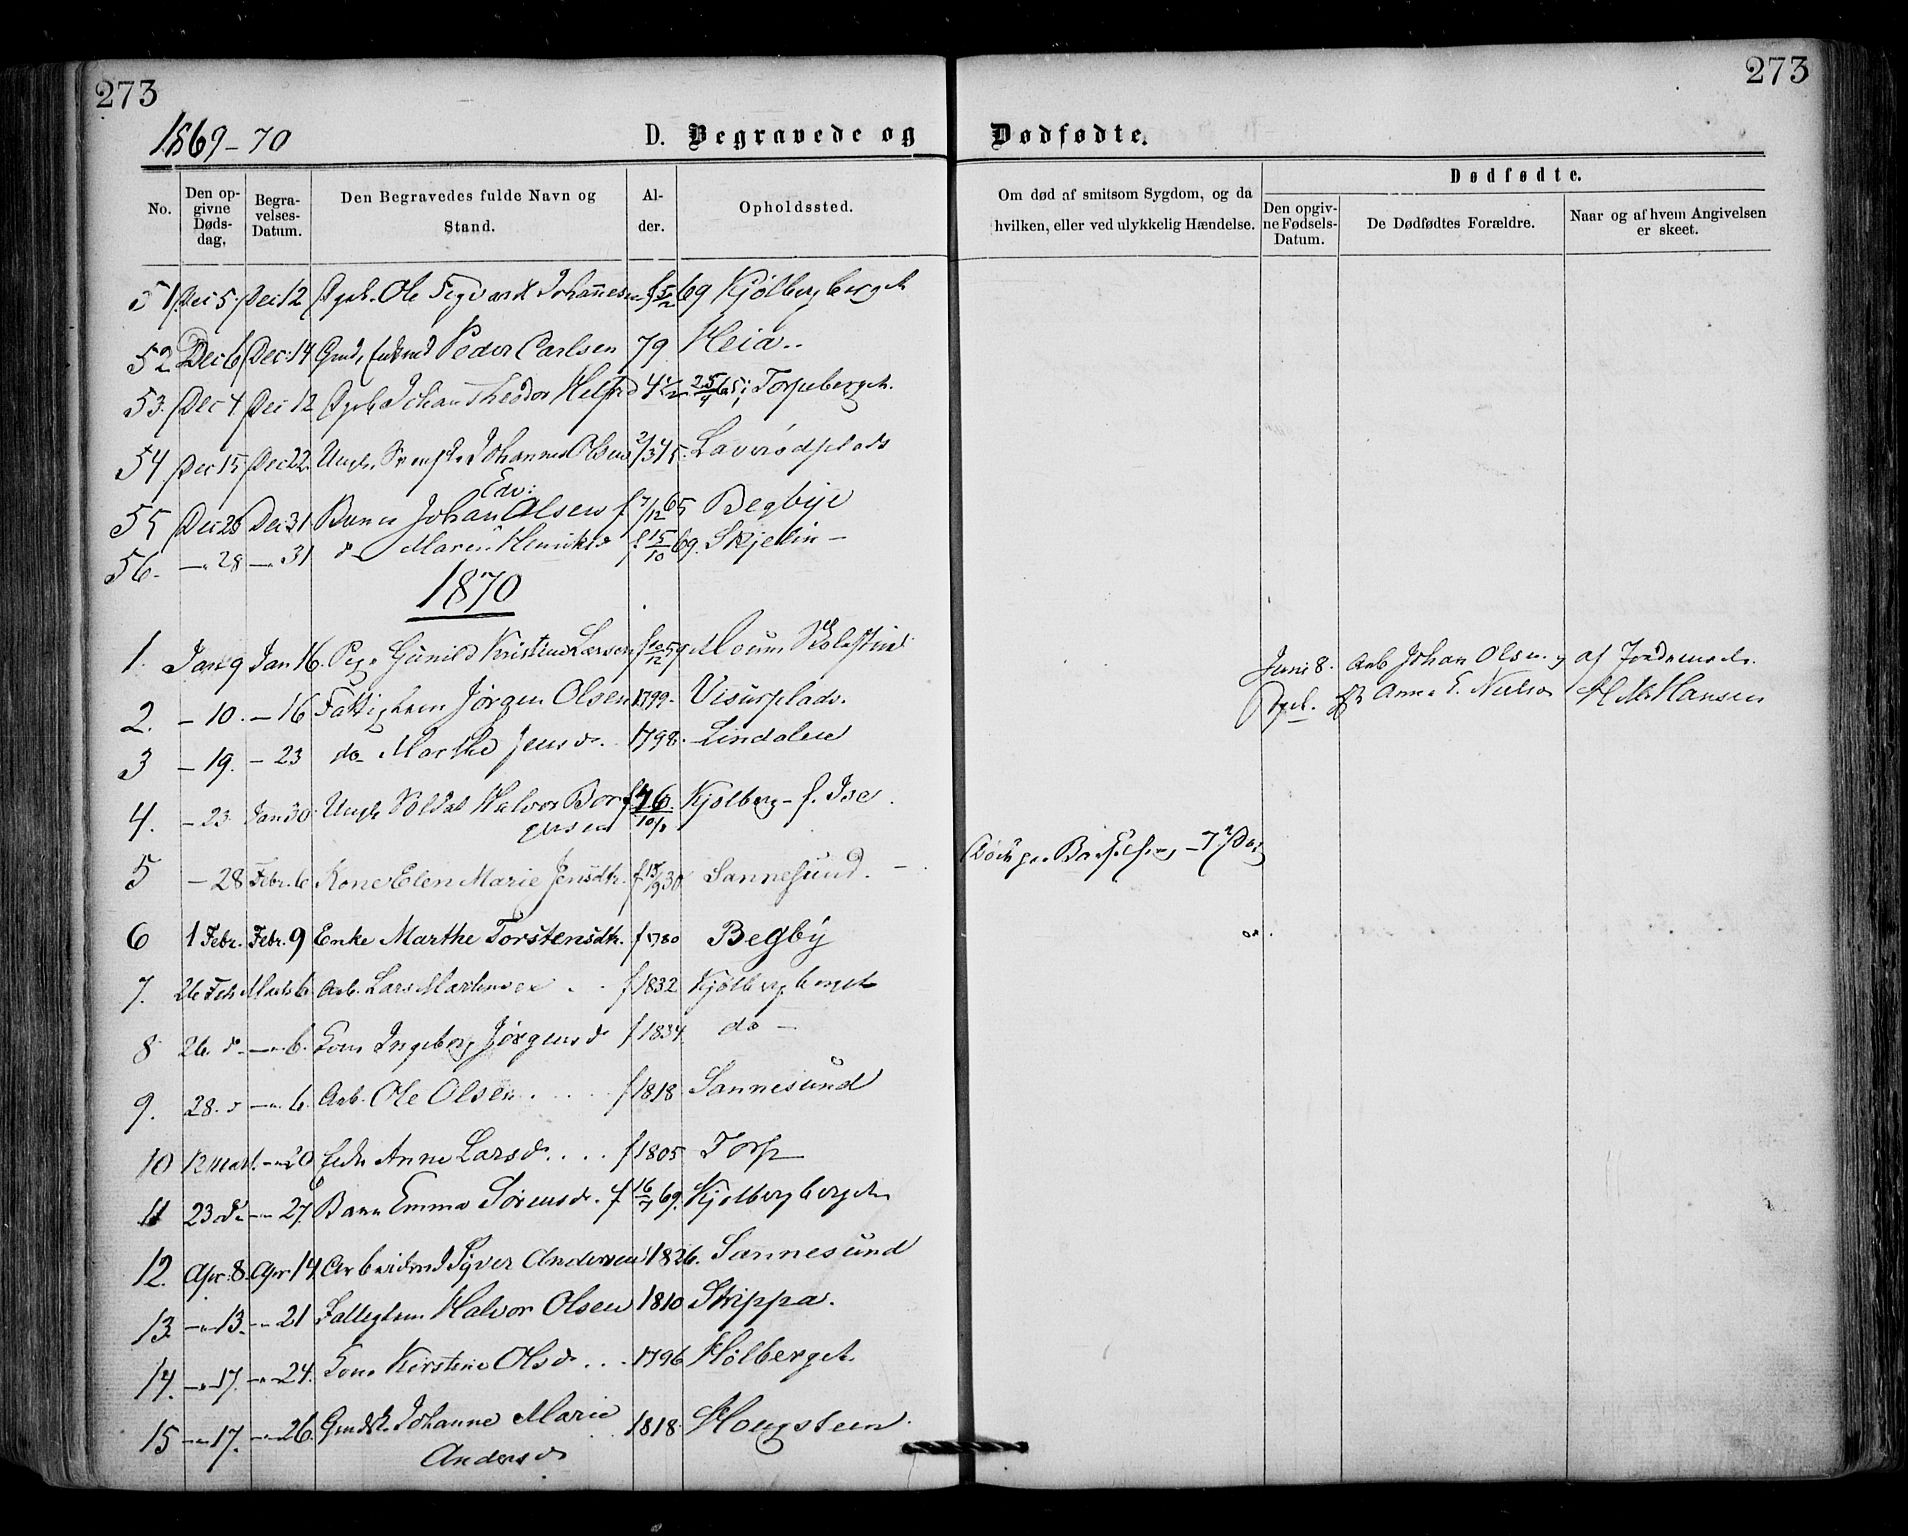 273
273
1869-70
D. Begravede og Dødfødte.
No.
Den opgivne Dødsdag.
Begravelses-Datum.
Den Begravedes fulde Navn og Stand.
Alder.
Opholdssted.
Om død af smitsom Sygdom, og da hvilken, eller ved ulykkelig Hændelse.
Dødfødte.
Den opgivne Fødsels-Datum.
De Dødfødtes Forældre.
Naar og af hvem Angivelsen er skeet.
51 Dec 5. Dec 12 Ole Sigvard Johannesen f 5/2 69 Kjølbergberget
52 Dec 6 Dec. 14 Peder Carlsen 79 Heia..
53. Dec 4 Dec 12 Johan Theodor 4 1/2 25/4 65; Torpeberget.
54 Dec 15 Dec 22. Ungk. Johannes Olsen
Edv:
55 Dec 28 Dec 31 Barn Johan Olsen f 7/12 65 Begbye
56. -"- 28 -"- 31 d- Maren Henriksd f. 15/10 69. Skjelin -
1870
1. Jan 9 Jan 16. Gunild Kristine Larsen
2. - 10. - 16 Fattiglem Jørgen Olsen 1799. Visurplads.
3 - 19. - 23 do- Marthe Jensd. 1798. Lindalen
4. - 23. Jan 30. Ungk. Soldat Halvor Bor
gersen Kjølberg - f. Ise.
5 - 28 Febr. 6 Kone Elen Marie Jensdtr. f 15/9 30 Sannesund. -
6 1 Febr. Febr. 9 Enke Marthe Torstensdtr. f 1780 Begby
7. 26 Feb Marts 6. Arb. Lars Martinsen f 1832 Kjølbergberget
8 26. d- -"- 6. Kone Ingeborg Jørgensd f 1834 do -
9. 28. d -"- 6. Arb. Ole Olsen. f 1818 Sannesund
10 12 Mart. -"- 20 Enke Anne Larsd. . . . f 1805 Torp
11 23 d- -"- 27. Barn Emma Sørensd. f. 16/7 69. Kjølbergberget
12. Apr. 8. Apr 14 Arbeidsmd Syver Andersen 1826. Sannesund
13. -"- 13. -"- 21 Fattiglem Halvor Olsen 1810 Skippa.
14. -"- 17. -"- 24. Kone Kirstine Olsd . . . 1796 Hølberget.
15 -"- 17. -"- 26. Gmdsk. Johanne Marie
Andersd 1818. Hougsteen
Juni 8. Arb Johan Olsen og af Jordemod.
Anne E. Nielsen H M Hansen